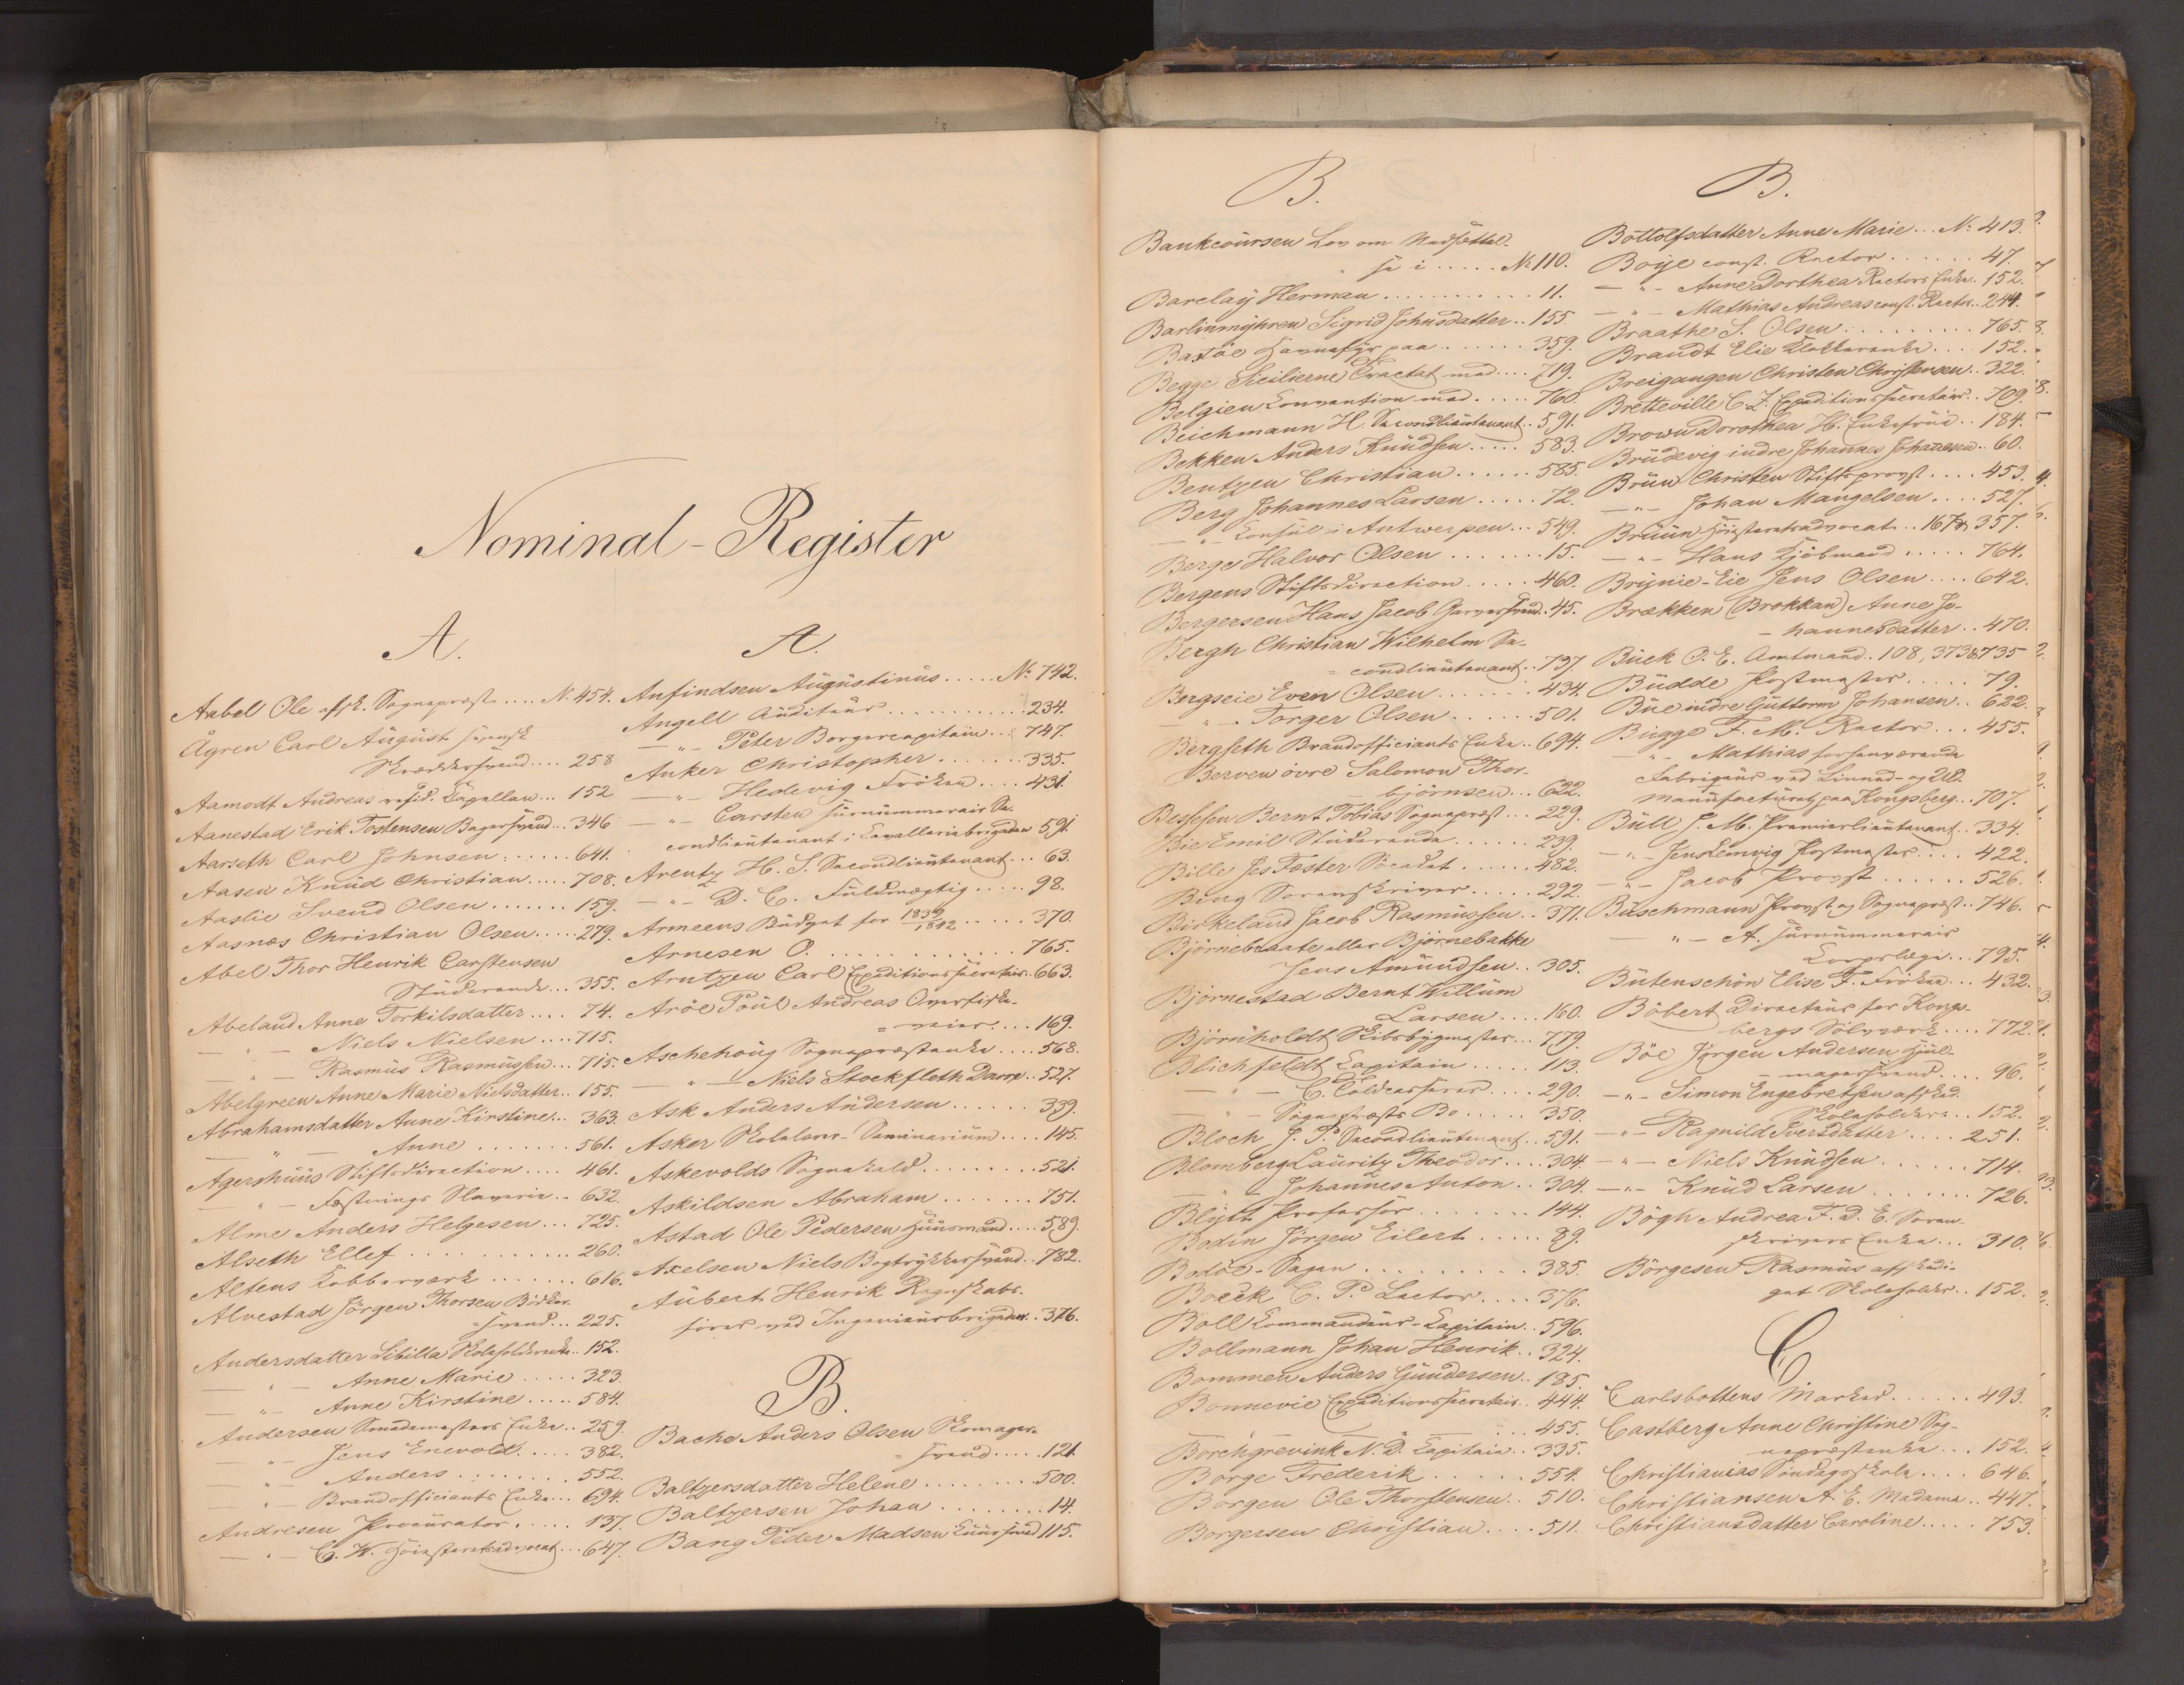 Nominal-Register
A.
Aabel Ole afsk. Sognepræst .... No. 454.
Ågren Carl August svensk
Skræddersvend .... 258
Aamodt Andreas resid. Capellan ... 152
Aanestad Erik Tostensen Bagersvend ... 346
Aarseth Carl Johnsen ...... 641.
Aasen Knud Christian ..... 708.
Aaslie Svend Olsen ....... 159.
Aasnæs Christian Olsen ..... 279.
Abel Thor Henrik Carstensen
Studerende ... 355.
Abeland Anne Torkilsdatter .... 74.
— " — Niels Nielsen .... 715.
— " — Rasmus Rasmussen ... 715.
Abelgreen Anne Marie Nielsdatter .. 155.
Abrahamsdatter Anne Kirstine ... 363.
— " — Anne ....... 561.
Agershuus Stiftsdirection .... 461.
— " — Fæstnings Slaverie .. 632.
Alme Anders Helgesen ... 725.
Alseth Ellef ........... 260.
Altens Kobberværk ....... 616.
Alvestad Jörgen Thorsen
svend ... 225.
Andersdatter Sibilla .. 152.
— " — Anne Marie ..... 323.
— " — Anne Kirstine .... 584.
Andersen Smedemesters Enke .. 259.
— " — Jens Enevold .... 382.
" Anders ........ 552.
— " — Brandofficiants Enke ... 694.
Andresen Procurator ..... 137.
— " — C. W. Höiesteretsadvocat ... 647.
A.
Anfindsen Augustinus ..... No. 742.
Angell Auditeur ............ 234.
— " — Peter Borgercapitain ... 747.
Anker Christopher ....... 335.
— " — Hedevig Fröken .... 431.
— " — Carsten surnummerair Se-
condlieutenant i Cavalleriebrigaden 591.
Arentz H. S. Secondlieutenant ... 63.
— " — D. C. Fuldmægtig ..... 98.
Armeens Budget for 1839/1842 ..... 370.
Arnesen O. ............. 765.
Arntzen Carl Expeditionssecretair. 663.
Aröe Poul Andreas Overfiske-
= veier .... 169.
Aschehoug Sognepræstenke .... 568.
— " — Niels Stockfleth Darre .. 527.
Ask Anders Andersen ...... 339.
Asker Skolelærer-Seminarium .... 145.
Askevolds Sognekald ......... 521.
Askildsen Abraham ....... 751.
Astad Ole Pedersen Huusmand .... 589.
Axelsen Niels Bogtrykkersvend .. 782.
Aubert Henrik Regnskabs-
förer ved Ingenieurbrigaden .. 376.
B.
Bache Anders Olsen Skomager-
= svend ..... 121.
Baltzersdatter Helene ........ 500.
Baltzersen Johan ......... 14.
Bang Peder Madsen 115.
B.
Bankcoursen Lov om Nedsættel-
se i ..... No. 110.
Barclay Herman ............ 11.
Barlinmyhren Sigrid Johnsdatter .. 155
Bastöe Havnefyr paa ....... 359.
Begge Sicilierne Tractat med .... 719.
Belgien Convention med ..... 760.
Beichmann H. Secondlieutenant .. 591.
Bekken Anders Knudsen ..... 583.
Bentzen Christian ...... 585.
Berg Johannes Larsen ..... 72.
— " — Consul i Antwerpen ... 549.
Berge Halvor Olsen ....... 15.
Bergens Stiftsdirection ..... 460.
Bergersen Hans Jacob Garversvend. 45.
Bergh Christian Wilhelm Se-
= condlieutenant .. 737.
Bergseie Even Olsen ....... 434.
— " — Torger Olsen ...... 501.
Bergseth Brandofficiants Enke .. 694.
Berven övre Salomon Thor-
björnsen ... 622.
Bessesen Bernt Tobias Sognepræst ... 229.
Bie Emil Studerende ...... 239.
Bille Jes Fæster Söcadet ...... 482.
Bing Sorenskriver ..... 292.
Birkeland Jacob Rasmussen .. 371.
Björnebraate eller Björnebakke
Jens Amundsen .. 305.
Björnestad Bernt Willum
Larsen .... 160.
Björnholdt Skibsbygmester ... 779.
Blichfeldt Capitain ..... 113.
— " — C. Toldcasserer .... 290.
— " — Sognepræsts Bo ..... 350.
Bloch J. P. Secondlieutenant .. 591.
Blomberg Lauritz Theodor .... 304.
— " — Johannes Anton .. 304.
Blytt Professor ....... 144.
Bodin Jörgen Eilert ..... 89.
Bodöe-Sagen ......... 385.
Boeck C. P. Lector .... 376.
Boll Commandeur-Capitain .. 596.
Bollmann Johan Henrik .. 324.
Bommen Anders Gundersen .. 185.
Bonnevie Expeditionssecretair .. 444.
— " — ... 455.
Borchgrevink N. D. Capitain .. 335.
Borge Frederik ...... 554.
Borgen Ole Thorstensen .. 510.
Borgersen Christian .... 511.
B.
Bottolfsdatter Anne Marie ... No. 413.
Boije const. Rector ....... 47.
— " — Anne Dorthea Rectors Enke. 152.
— " — Mathias Andreas const. Rector .. 244.
Braathe S. Olsen .......... 765.
Brandt Elie Klokkerenke .... 152.
Breigangen Christen Christensen .. 322.
Bretteville C. Z. Expeditionssecretair .. 709.
Brown Dorothea H. Enkefrue .. 184.
Brudevig indre Johannes Johannesen .. 60.
Bruun Christen Stiftsprovst .... 453.
— " — Johan Mangelsen .... 527.
Bruun Höiesteretsadvocat .. 167 & 357.
— " — Hans Kjöbmand ..... 764.
Brynie-Eie Jens Olsen .... 642.
Brækken (Brokkan) Anne Jo-
— hannesdatter .. 470.
Buck P. E. Amtmand. 108, 373 & 735
Budde Postmester ..... 79.
Bue indre Guttorm Johansen .. 622.
Bugge F. M. Rector ... 455.
— " — Mathias forhenværende
Fabriqueur ved Linned- og Uld-
manufacturet paa Kongsberg .. 707.
Bull J. M. Premierlieutenant .. 334.
— " — Jens Lemvig Postmester .... 422.
— " — Jacob Provst ...... 526.
Buschmann Provst og Sognepræst .. 746.
— " — A. surnummerair
Corpslæge ... 795.
Butenschön Elise F. Fröken ... 432.
Böbert Directeur for Kongs-
bergs Sölvværk .... 772.
Böe Jörgen Andersen Hjul-
— magersvend .... 96.
— " — Simon Engebretsen afsked.
Skoleholder .. 152.
— " — Ragnild Iversdatter .... 251.
— " — Niels Knudsen ...... 714.
— " — Knud Larsen ....... 726.
Bögh Andrea F. D. E. Soren-
skrivers Enke ... 310.
Börgesen Rasmus afskedi-
get Skoleholder .. 152.
C
Carlsbottens Marked ...... 493.
Castberg Anne Christine Sog-
nepræstenke ... 152.
Christianias Söndagsskole .... 646.
Christiansen A. E. Madame .. 447.
Christiansdatter Caroline ..... 753.